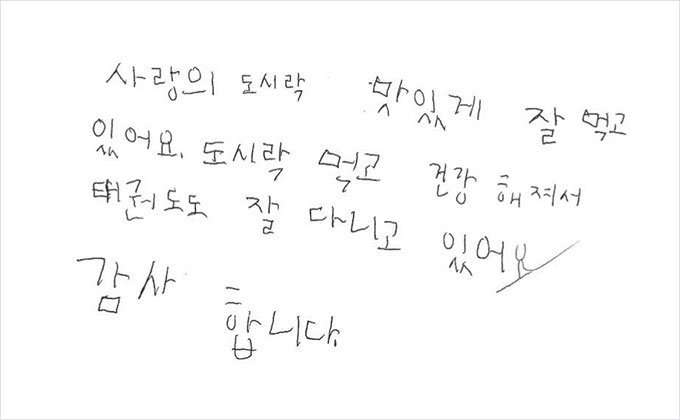 사랑의 도시락 맛있게 잘 먹고
있어요. 도시락 먹고 건강 해져서
태권도도 잘 다니고 있어요
감사 합니다.